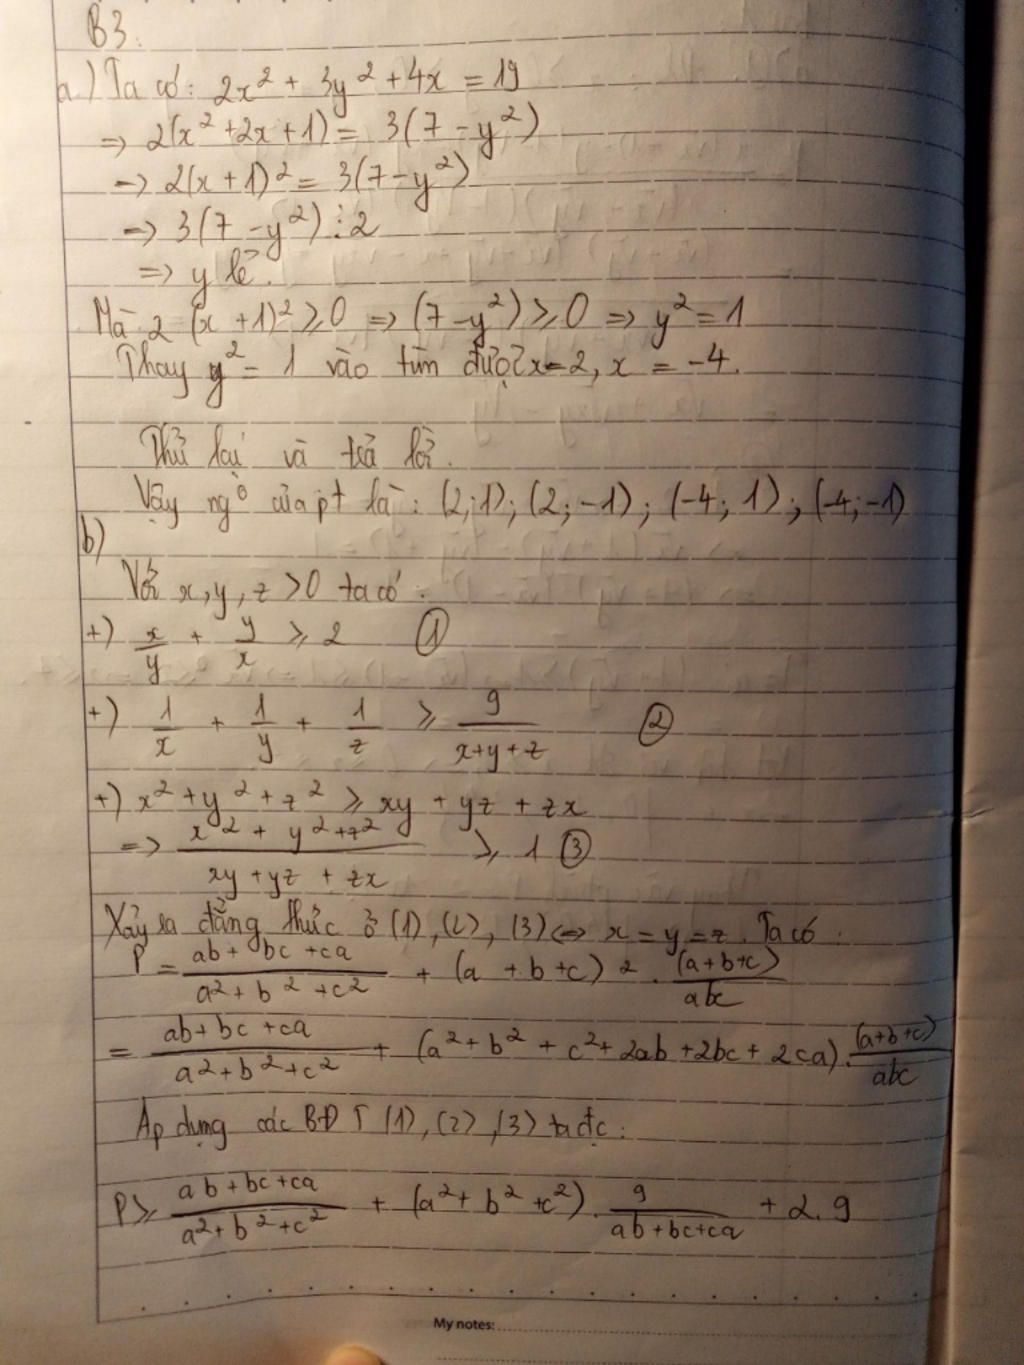 B3.
a) Ta có: 2x² + 3y² + 4x = 19
=> 2(x² + 2x + 1) = 3(7 - y²)
=> 2(x + 1)² = 3(7 - y²)
=> 3(7 - y²) ⋮ 2
=> y lẻ.
Mà 2 (x + 1)² ≥ 0 => (7 - y²) ≥ 0 => y² = 1
Thay y² = 1 vào tìm được x = 2, x = -4.
Thử lại và trả lời.
Vậy ngº của pt là: (2; 1); (2; -1); (-4; 1); (-4; -1)
b)
Với x, y, z > 0 ta có:
+) x/y + y/x ≥ 2 ①
+) 1/x + 1/y + 1/z ≥ 9/(x+y+z) ②
+) x² + y² + z² ≥ xy + yz + zx
=> (x² + y² + z²)/(xy + yz + zx) ≥ 1 ③
Xảy ra đẳng thức ở (1), (2), (3) <=> x = y = z. Ta có:
P = (ab + bc + ca)/(a² + b² + c²) + (a + b + c) 2 . (a+b+c)/abc
= (ab + bc + ca)/(a² + b² + c²) + (a² + b² + c² + 2ab + 2bc + 2ca) . (a+b+c)/abc
Áp dụng các BĐT (1), (2), (3) ta đc:
P ≥ (ab + bc + ca)/(a² + b² + c²) + (a² + b² + c²) . 9/(ab + bc + ca) + 2.9
My notes: